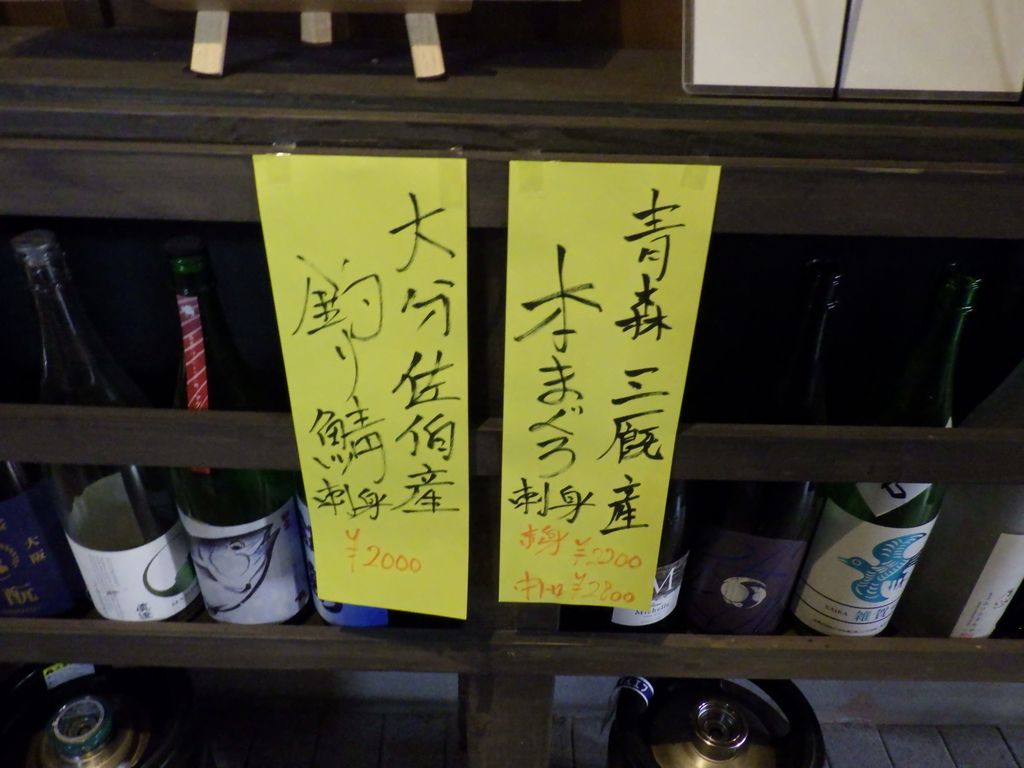 青森三厩産
本まぐろ
刺身
赤身 ¥2200
中トロ ¥2800
大分佐伯産
釣り鯖
刺身
¥2000
大阪
雑賀
SAIKA